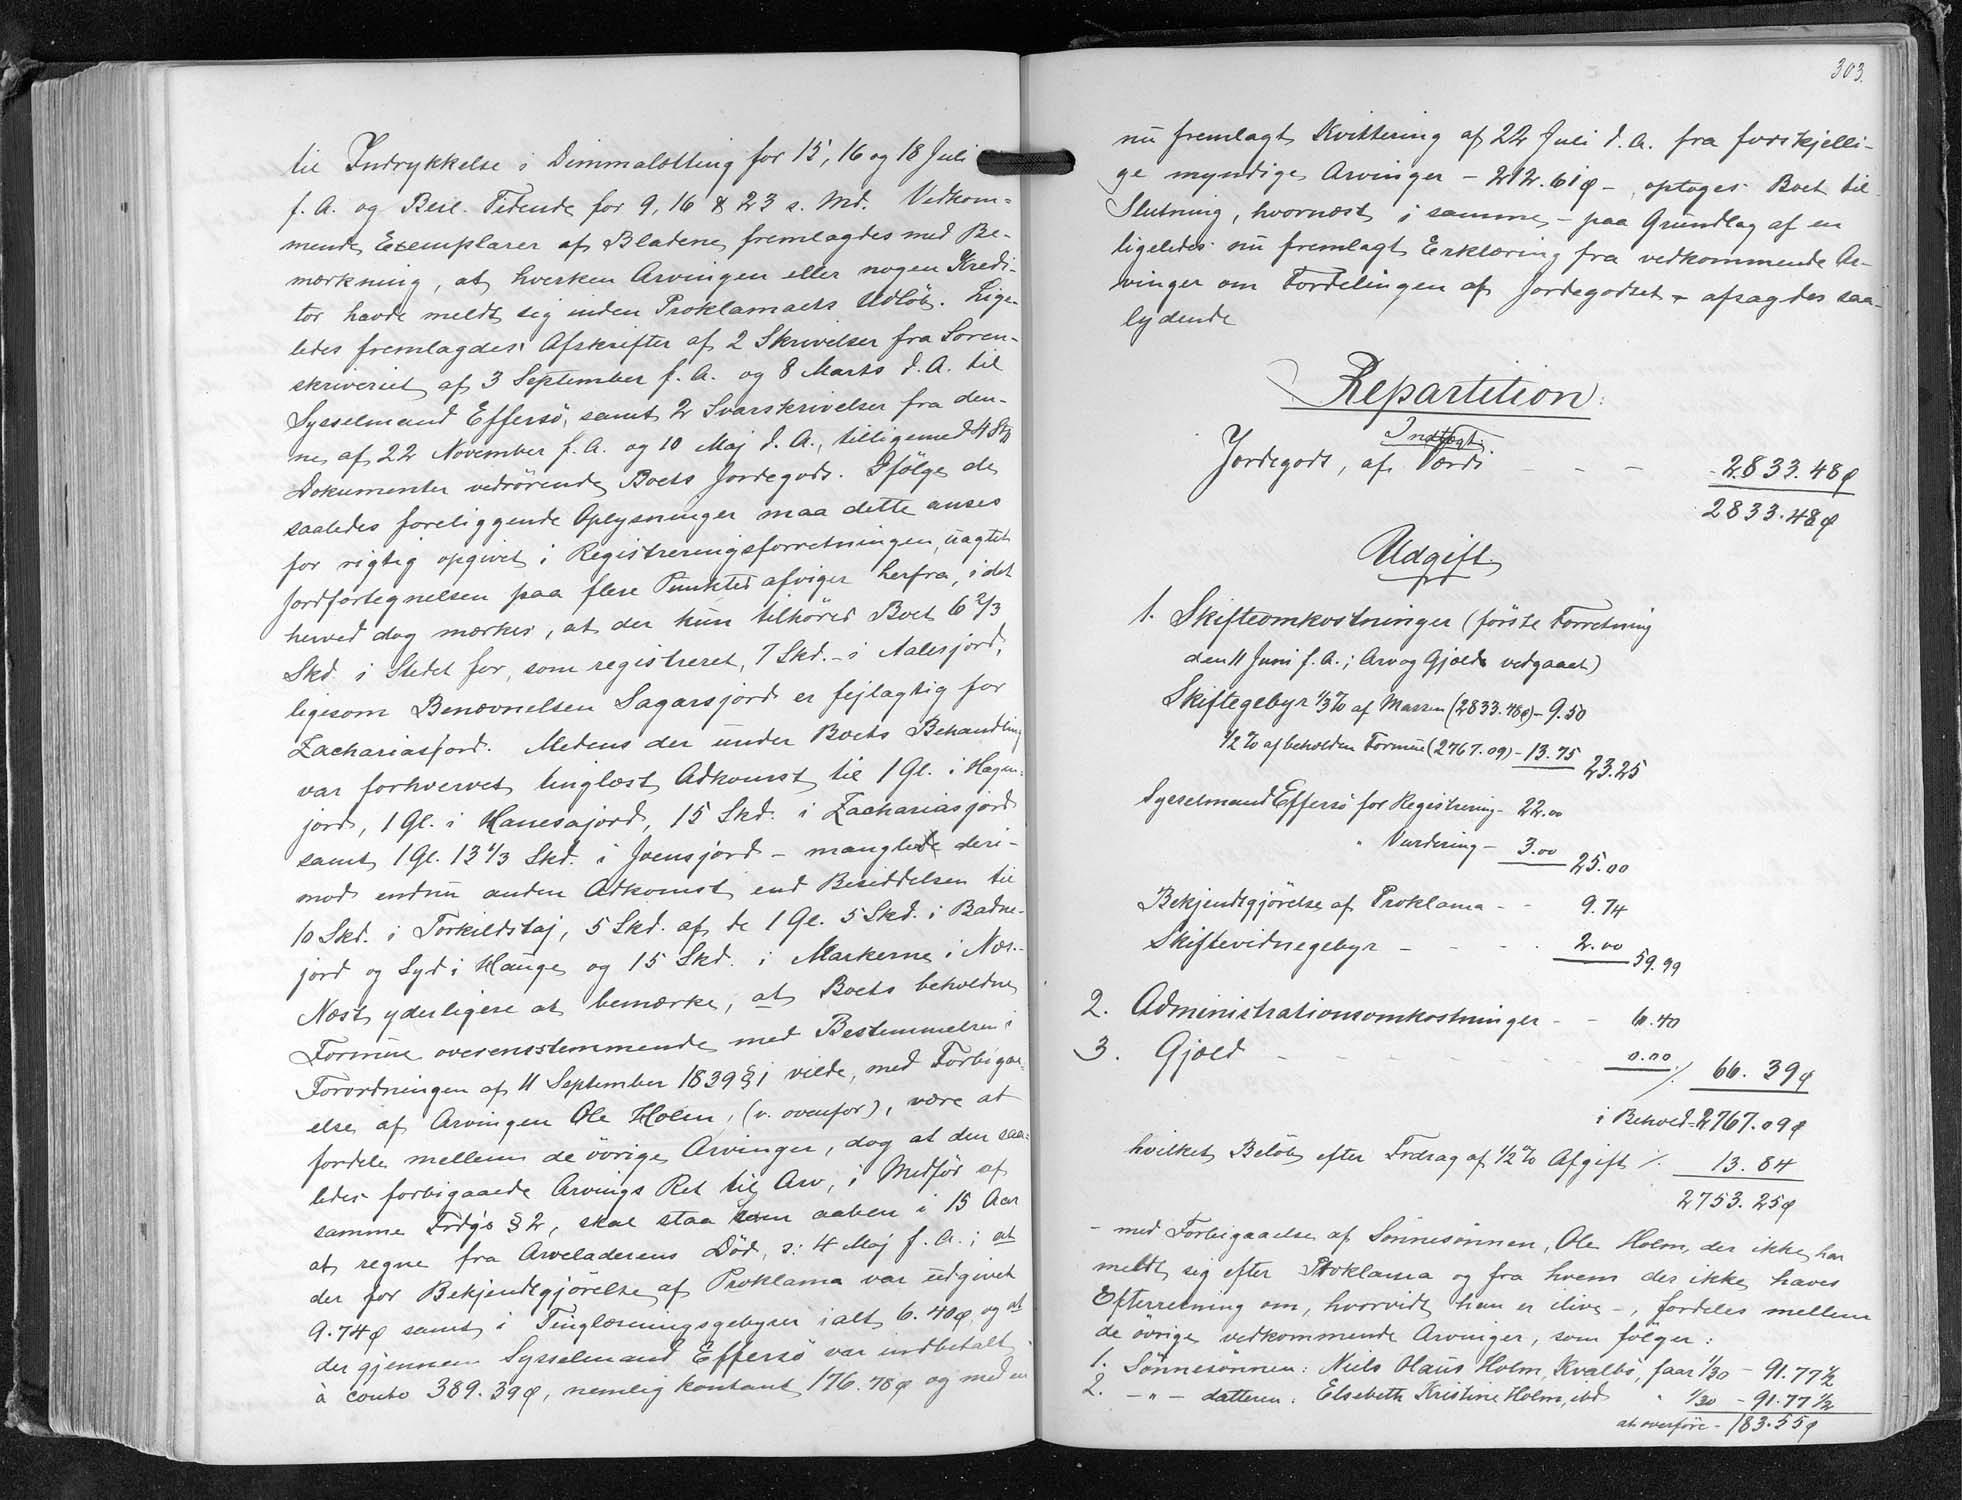 til Indrykkelse i Dimmalætting for 15, 16 og 18 Juli
f. A. og Berl. Tidende for 9, 16 & 23 s. Md. Vedkom-
mende Exemplarer af Bladene fremlagdes med Be-
mærkning, at hverken Arvingen eller nogen Kredi-
tor havde meldt sig inden Proklamaets Udløb. Lige-
ledes fremlagdes Afskrifter af 2 Skrivelser fra Soren-
skriveriet af 3 September f. A. og 8 Marts d. A. til
Sysselmand Effersö, samt 2 Svarskrivelser fra den-
ne af 22 November f. A. og 10 Maj d. A., tilligemed 4 Stk
Dokumenter vedrörende Boets Jordegods. Ifölge de
saaledes foreliggende Oplysninger maa dette anses
for rigtig opgivet i Registreringsforretningen, uagtet
Jordfortegnelsen paa flere Punkter afviger herfra, idet
herved dog mærkes, at der kun tilhörer Boet 6 2/3
Skd. i Stedet for, som registreret, 7 Skd. i Aalesjord,
ligesom Benævnelsen Sagarsjord er fejlagtig for
Zachariasjord. Medens der under Boets Behandling
var forhvervet tinglæst Adkomst til 1 Gl. i Hagen-
jord, 1 Gl. i Hanesajord, 15 Skd. i Zachariasjord
samt 1 Gl. 13 1/3 Skd. i Joensjord - manglede deri-
mod endnu anden Adkomst end Besiddelsen til
10 Skd. i Torkildstaj, 5 Skd. af de 1 Gl. 5 Skd. i Badne-
jord og Syd i Hauge og 15 Skd. i Markerne i Næs.-
Næst yderligere at bemærke, at Boets beholdne
Formue overensstemmende med Bestemmelsen i
Forordningen af 11 September 1839 § 1 vilde, med Forbigaa-
else af Arvingen Ole Holm, (v. ovenfor), være at
fordele mellem de övrige Arvinger, dog at den saa-
ledes forbigaaede Arvings Ret til Arv, i Medför af
samme Frdgs § 2, skal staa ham aaben i 15 Aar
at regne fra Arveladerens Död, ɔ: 4 Maj f. A.; at
der for Bekjendtgjörelse af Proklama var udgivet
9.74 ø samt i Tinglæsningsgebyrer ialt 6.40 ø, og at
der gjennem Sysselmand Effersö var indbetalt
à conto 389.39 ø, nemlig kontant 176.78 ø og med en
303.
nu fremlagt Kvittering af 22 Juli d. A. fra forskjelli-
ge myndige Arvinger - 212.61 ø -, optoges Boet til
Slutning, hvornæst i samme - paa Grundlag af en
ligeledes nu fremlagt Erklæring fra vedkommende Ar-
vinger om Fordelingen af Jordegodset - afsagdes saa-
lydende
Repartition:
Indtægt.
Jordegods, af Værdi - - - 2833.48 ø
2833.48 ø
Udgift
1. Skifteomkostninger (förste Forretning
den 11 Juni f. A.; Arv og Gjæld vedgaaet)
Skiftegebyr 1/3 % af Massen (2833.48 ø) - 9.50
1/2 % af beholden Formue (2767.09) - 13.75 23.25
Sysselmand Effersö for Registrering - 22.00
" Vurdering - 3.00 25.00
Bekjendtgjörelse af Proklama - - 9.74
Skiftevidnegebyr - - - - 2.00 59.99
2. Administrationsomkostninger - - 6.40
3. Gjæld - - - - - - 0.00 ./. 66.39 ø
i Behold - 2767.09 ø
hvilket Belöb efter Fradrag af 1/2 % Afgift ./. 13.84
2753.25 ø
- med Forbigaaelse af Sönnesönnen, Ole Holm, der ikke har
meldt sig efter Proklama og fra hvem der ikke haves
Efterretning om, hvorvidt han er ilive -, fordeles mellem
de övrige vedkommende Arvinger, som fölger:
1. Sönnesönnen: Niels Olaus Holm, Kvalbö, faar 1/30 - 91.77 1/2
2. - " - datteren: Elsebeth Kristine Holm, ibd " 1/30 - 91.77 1/2
at overföre - 183.55 ø